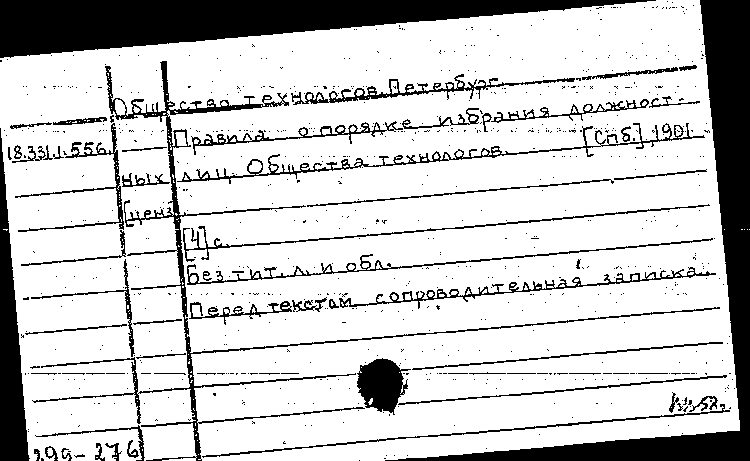 Общество технологов. Петербург.
18.331.1.556. Правила о порядке избрания должност-
ных лиц Общества технологов. [Спб.], 1901
[ценз.
[4] с.
Без тит. л. и обл.
Перед текстом сопроводительная записка.
299-276